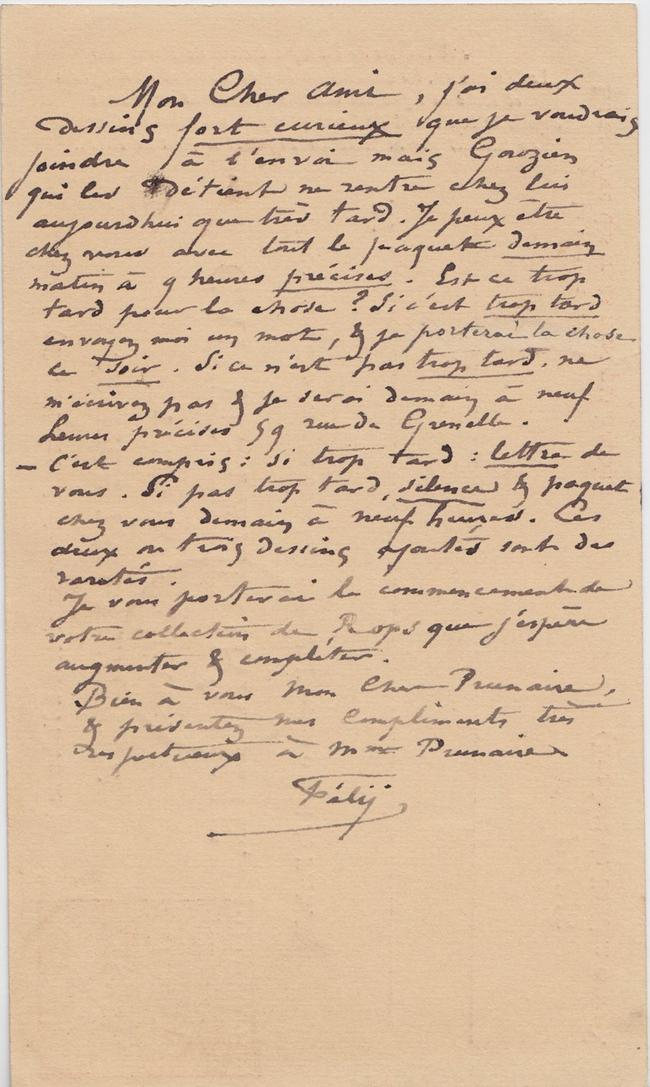 Mon Cher Ami, j'ai deux
dessins fort curieux que je voudrais
joindre à l'envoi mais Gouzien
qui les détient ne rentre chez lui
aujourdhui que très tard. Je peux être
chez vous avec tout le paquet demain
matin à 9 heures précises. Est ce trop
tard pour la chose ? Si c'est trop tard
envoyez moi un mot, & je porterai la chose
ce soir. Si ce n'est pas trop tard, ne
m'écrivez pas & je serai demain à neuf
heures précises 59 rue de Grenelle.
– C'est compris : si trop tard : lettre de
vous. Si pas trop tard, silence & paquet
chez vous demain à neuf heures. Ces
deux ou trois dessins ajoutés sont des
raretés.
Je vous porterai le commencement de
votre collection de Rops que j'espère
augmenter & compléter.
Bien à vous Mon Cher Prunaire,
& présentez mes compliments très
respectueux à Mme Prunaire
Fély